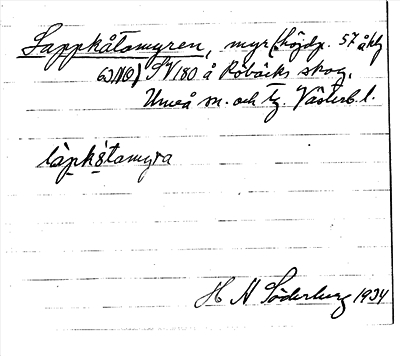 Lappkåtamyren, myr (höjdp. 57 åkly
60 NO) SV 180 å Röbäcks skog,
Umeå sn. och tg. Västerb. l.
làpkåtamyra
H N Söderberg 1934